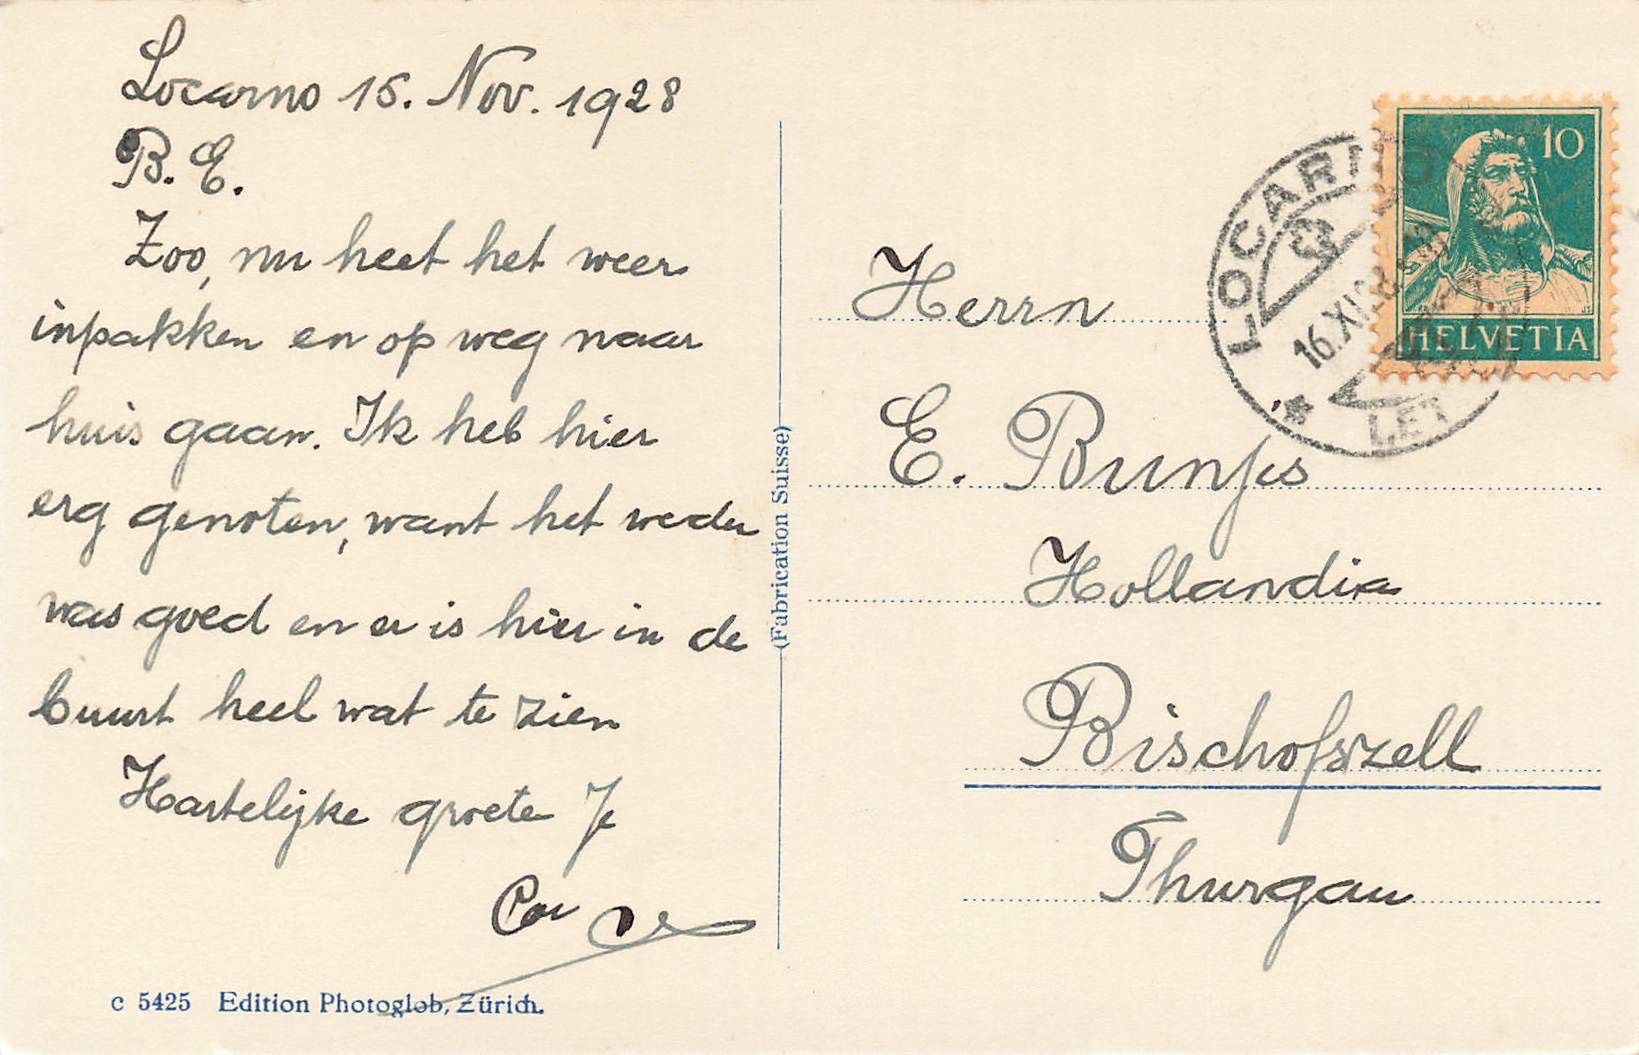 Locarno 15. Nov. 1928
B. E.
Zoo, nu heet het weer
inpakken en op weg naar
huis gaan. Ik heb hier
erg genoten, want het weder
was goed en er is hier in de
buurt heel wat te zien
Hartelijke groete Je
c 5425 Edition Photoglob, Zürich.
(Fabrication Suisse)
LOCARNO
16.XI.28
LET
10
HELVETIA
Herrn
E. Bunjes
Hollandia
Bischofszell
Thurgau